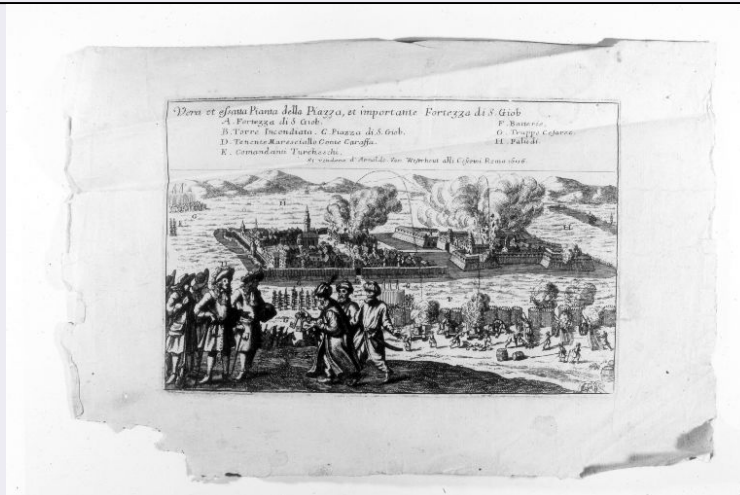 Vera et essatta Pianta della Piazza, et importante Fortezza di S. Giob
A. Fortezza di S. Giob.
B. Torre Incendiata. C. Piazza di S. Giob.
D. Tenente Maresciallo Conte Caraffa.
E. Comandanti Turcheschi.
F. Batterie.
G. Truppe Cesaree.
H. Paludi.
Si vendono d'Arnoldo Van Westerhout alli Cesarini Roma